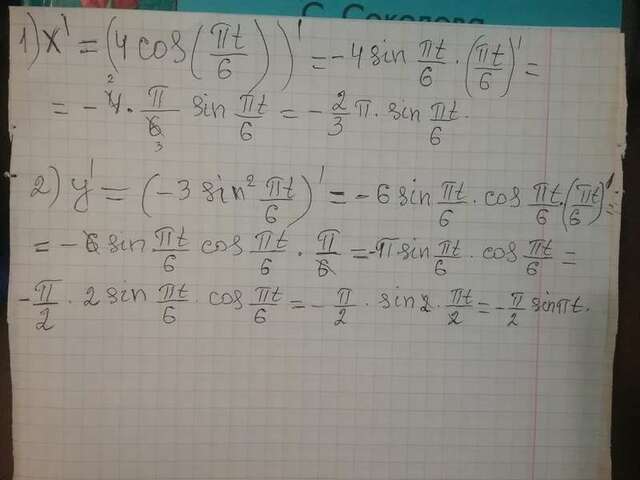 С. Соколова
1) x' = (4 cos(πt/6))' = -4 sin πt/6 · (πt/6)' =
= -4 · π/6 sin πt/6 = - 2/3 π · sin πt/6.
2) y' = (-3 sin² πt/6)' = -6 sin πt/6 · cos πt/6 · (πt/6)' =
= -6 sin πt/6 cos πt/6 · π/6 = -π sin πt/6 · cos πt/6 =
- π/2 · 2 sin πt/6 · cos πt/6 = - π/2 · sin 2 · πt/2 = - π/2 sin πt.